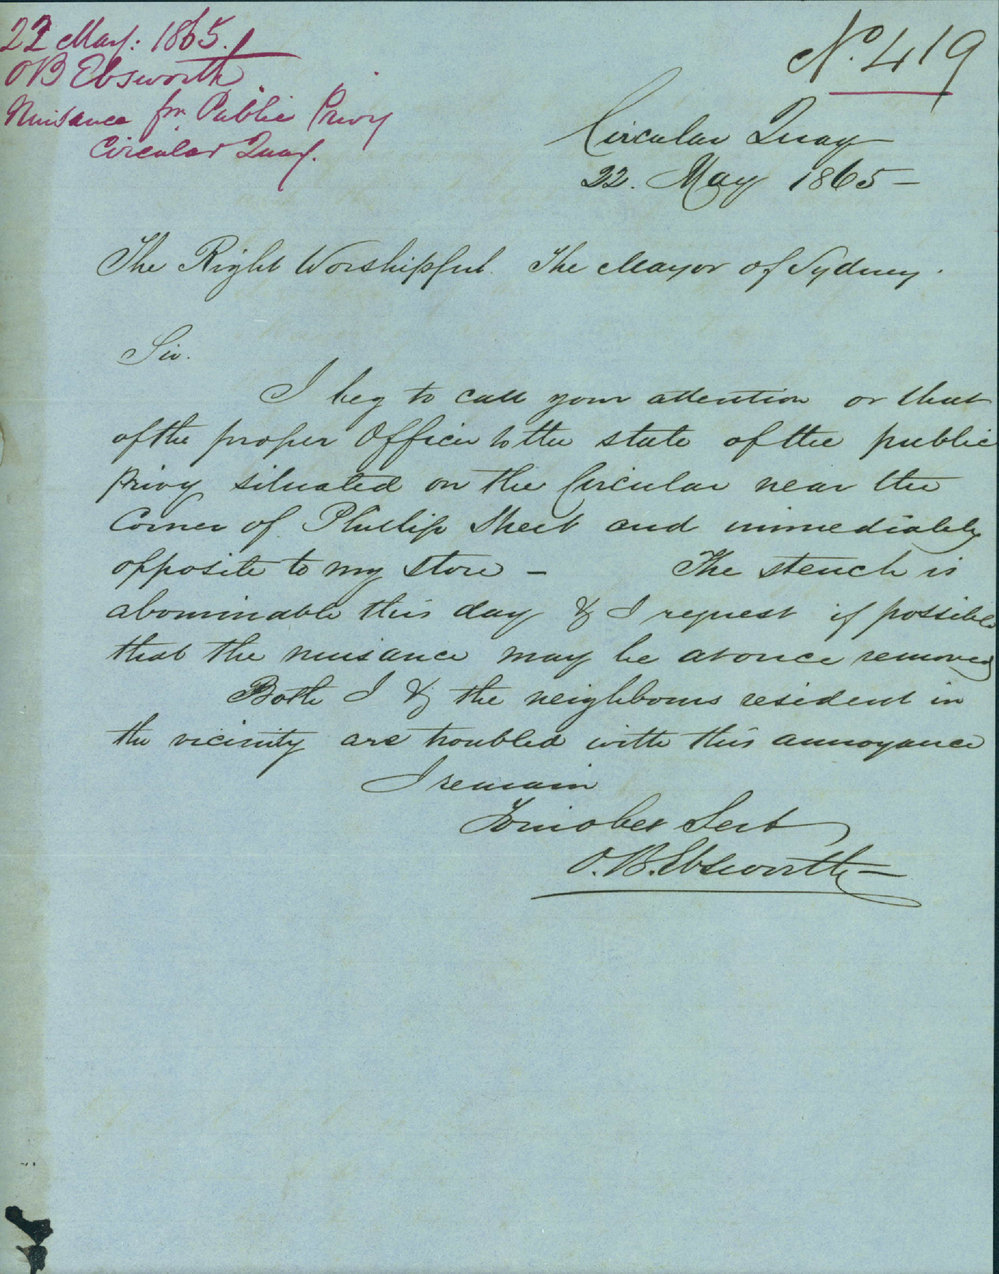 22 May: 1865.
OB Ebsworth
Nuisance fm Public Privy
Circular Quay.
No. 419
Circular Quay
22. May 1865 -
The Right Worshipful. The Mayor of Sydney.
Sir.
I beg to call your attention or that
of the proper Officer to the state of the public
Privy situated on the Circular near the
Corner of Phillip Street and immediately
opposite to my store - The stench is
abominable this day & I request if possible
that the nuisance may be at once removed
Both I & the neighbours resident in
the vicinity are troubled with this annoyance
I remain
Your obet Sert
O. B. Ebsworth -